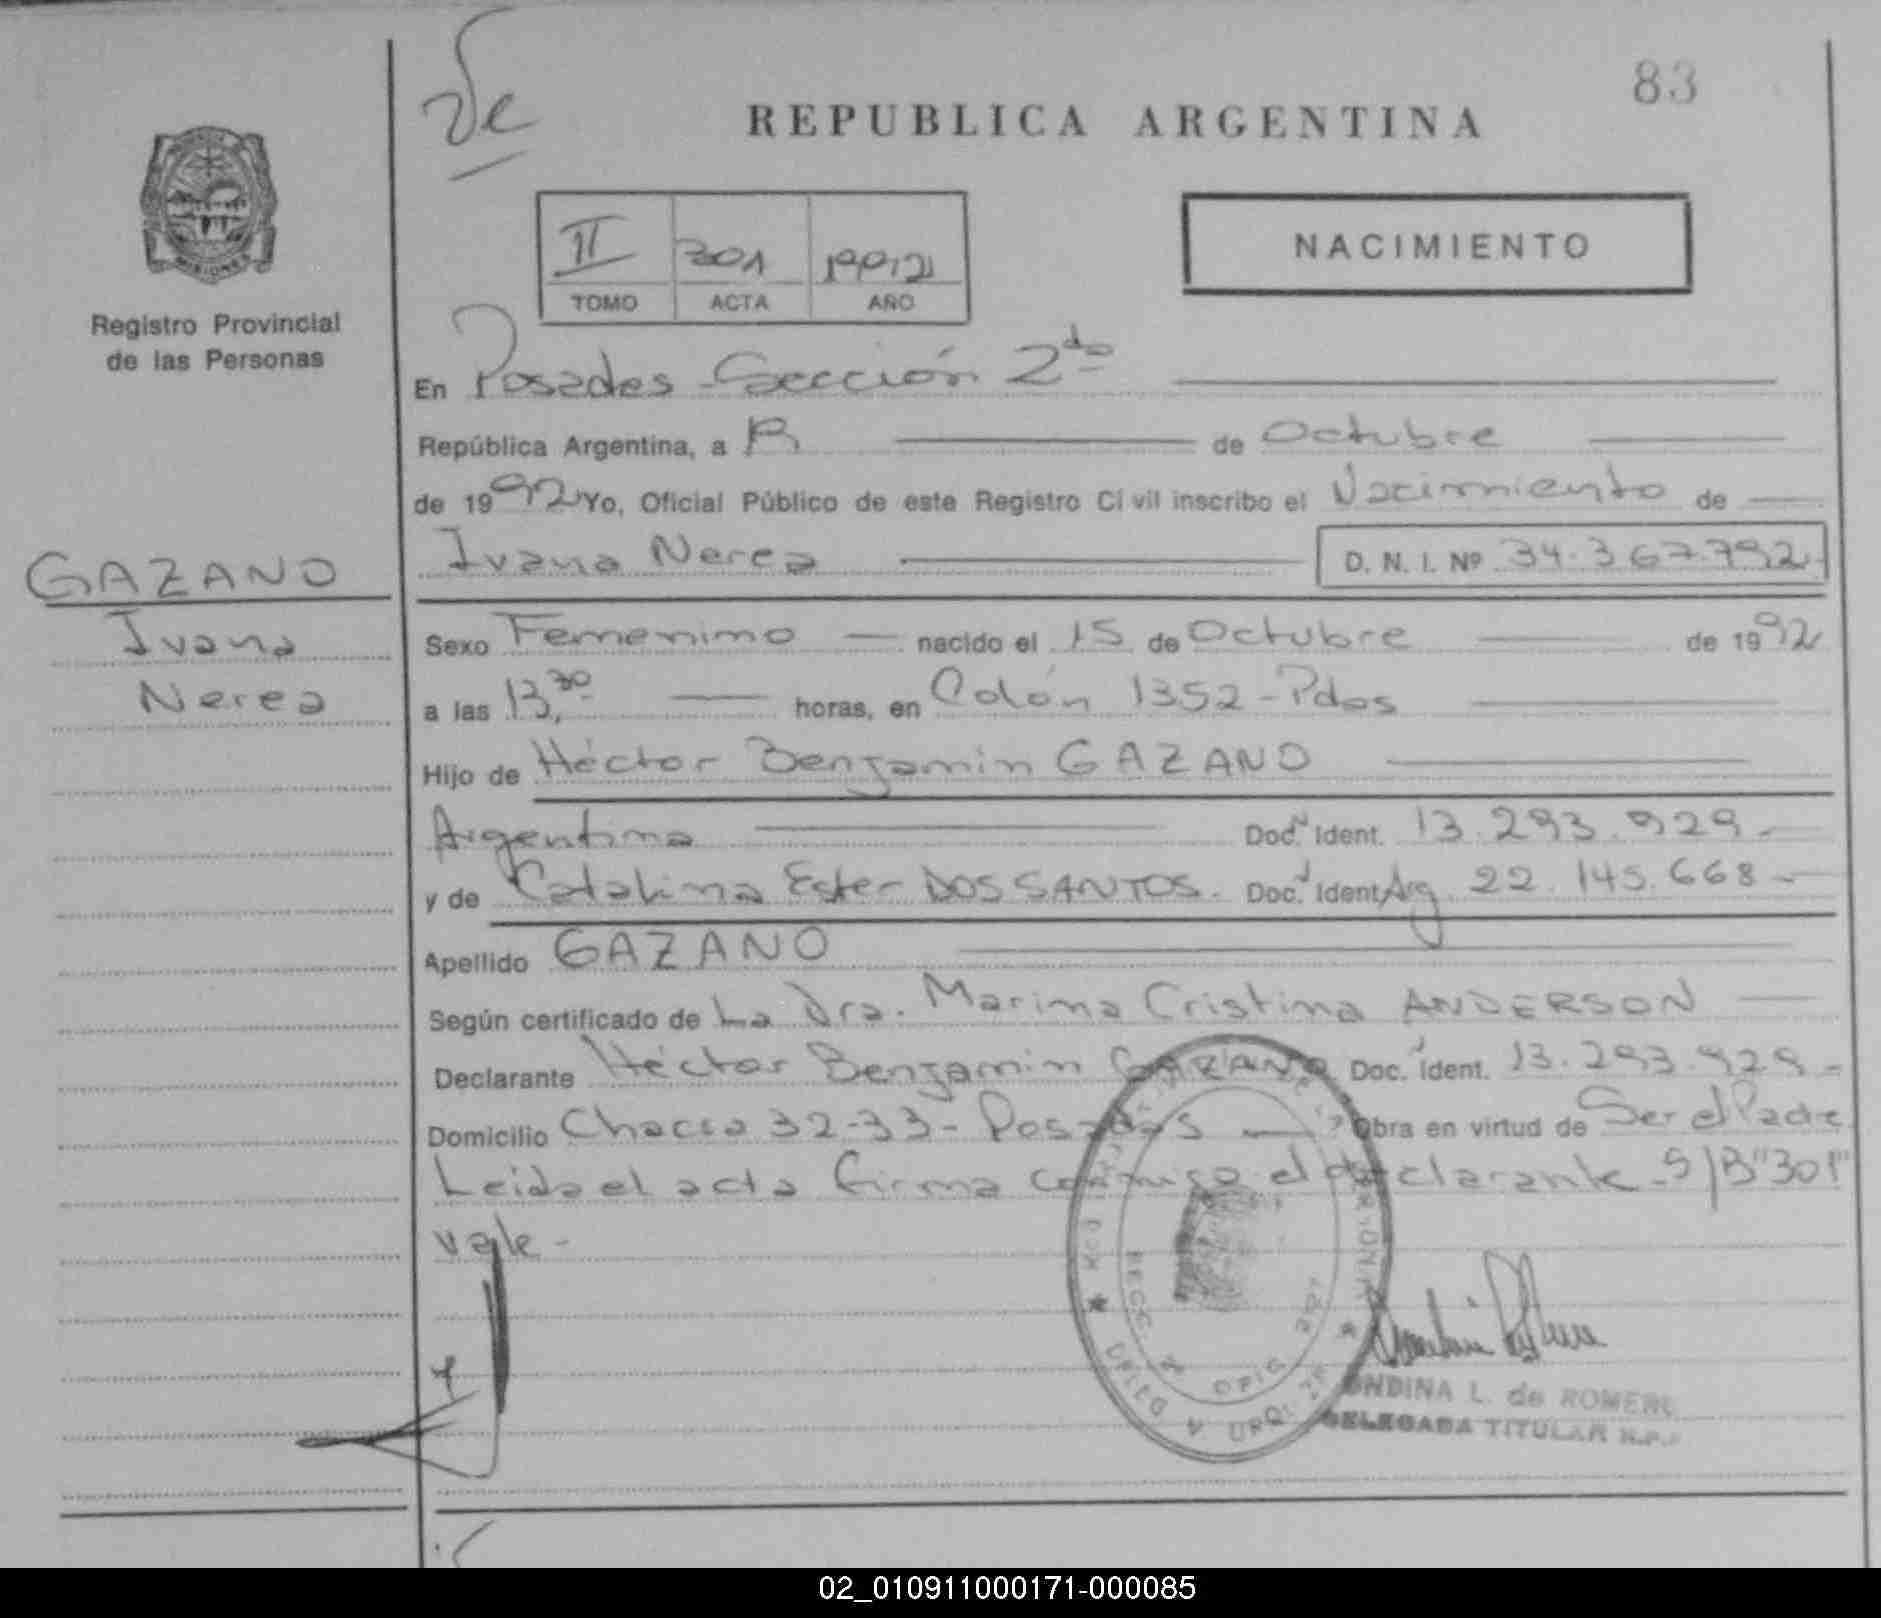 83
REPUBLICA ARGENTINA
MISIONES
Registro Provincial
de las Personas
II 301 1992
TOMO ACTA AÑO
NACIMIENTO
En Posadas - Sección 2da
República Argentina, a de Octubre
de 1992 Yo, Oficial Público de este Registro Civil inscribo el Nacimiento de
GAZANO
Ivana
Nerea
Ivana Nerea D. N. I. Nº 34.367.792
Sexo Femenino nacido el 15 de Octubre de 1992
a las 13,30 horas, en Colón 1352 - Pdas
Hijo de Héctor Benjamin GAZANO
Argentino Doc. Ident. 13.293.929 -
y de Catalina Ester DOS SANTOS. Doc. Ident Arg 22.145.668 -
Apellido GAZANO
Según certificado de La Dra. Marina Cristina ANDERSON
Declarante Héctor Benjamin GAZANO Doc. Ident. 13.293.929 -
Domicilio Chacra 32-33 - Posadas Obra en virtud de Ser el Padre
Leida el acta firma conmigo el declarante - S/B "301"
vale -
ONDINA L. de ROMERO
DELEGADA TITULAR R.P.
02_010911000171-000085